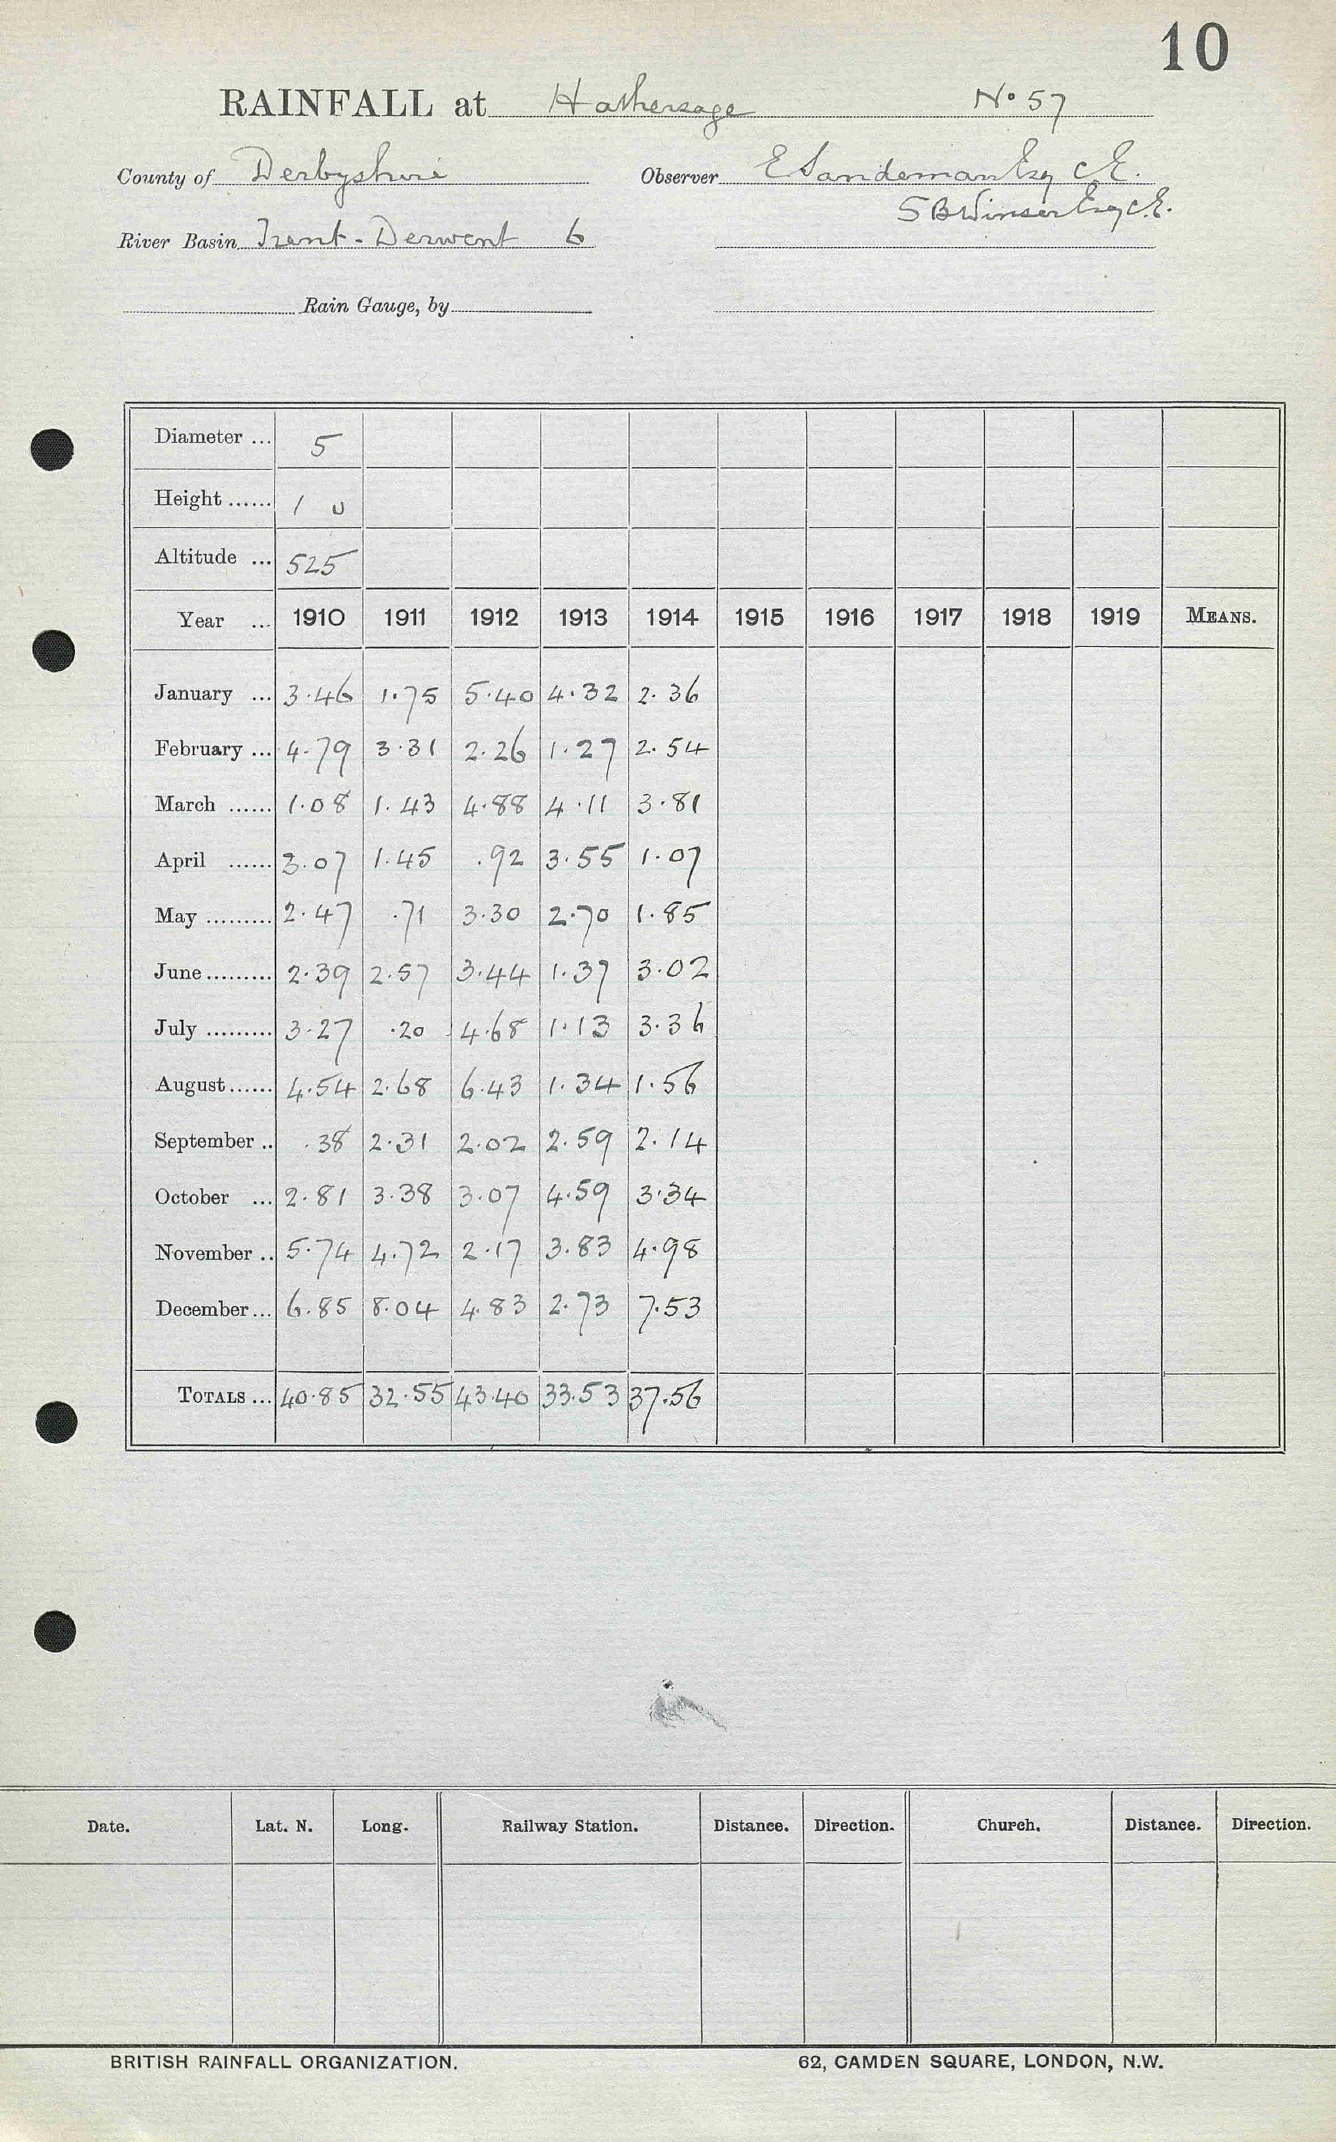 10
RAINFALL at Hathersage No 57
County of Derbyshire Observer E Sandeman Esq C.E.
S B Winser Esq C.E.
River Basin Trent - Derwent 6
Rain Gauge, by
Diameter ... 5
Height ...... 1 0
Altitude ... 525
Year ... 1910 1911 1912 1913 1914 1915 1916 1917 1918 1919 MEANS.
January ... 3.46 1.75 5.40 4.32 2.36
February ... 4.79 3.31 2.26 1.27 2.54
March ...... 1.08 1.43 4.88 4.11 3.81
April ...... 3.07 1.45 .92 3.55 1.07
May ......... 2.47 .71 3.30 2.70 1.85
June ......... 2.39 2.57 3.44 1.37 3.02
July ......... 3.27 .20 4.68 1.13 3.36
August ...... 4.54 2.68 6.43 1.34 1.56
September .. .38 2.31 2.02 2.59 2.14
October ... 2.81 3.38 3.07 4.59 3.34
November .. 5.74 4.72 2.17 3.83 4.98
December ... 6.85 8.04 4.83 2.73 7.53
TOTALS ... 40.85 32.55 43.40 33.53 37.56
Date. Lat. N. Long. Railway Station. Distance. Direction. Church. Distance. Direction.
BRITISH RAINFALL ORGANIZATION. 62, CAMDEN SQUARE, LONDON, N.W.